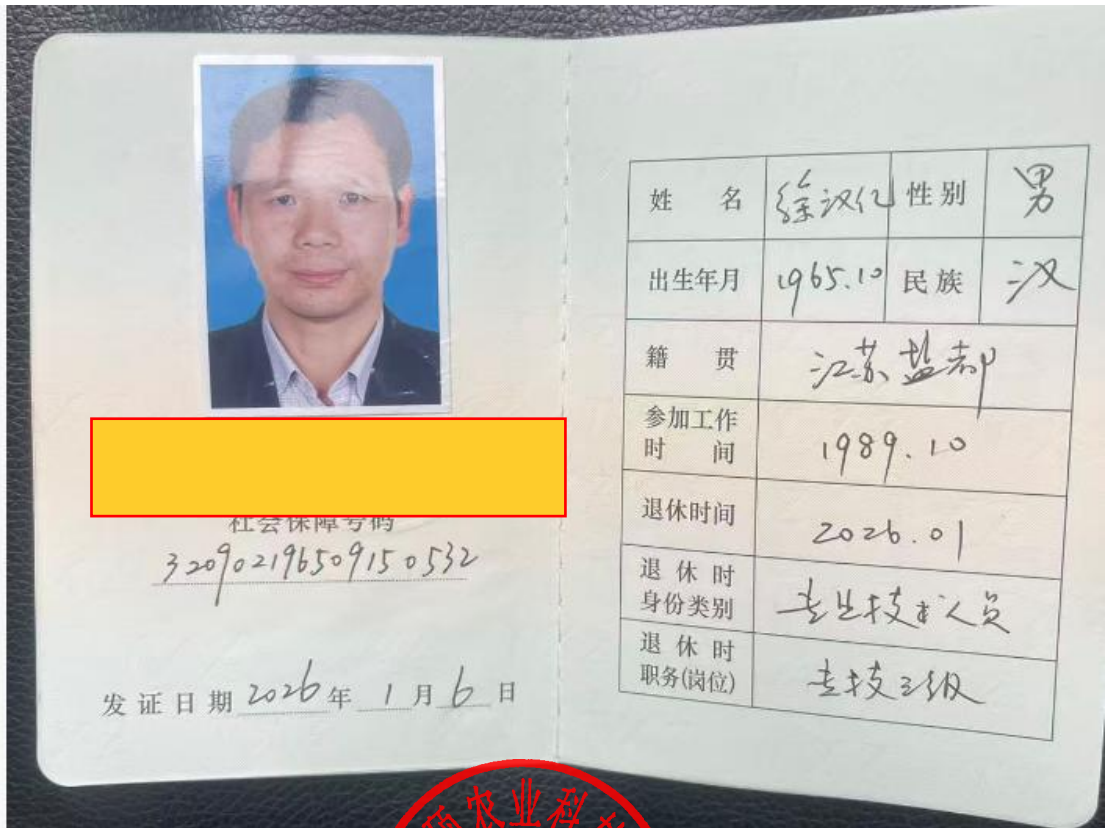 社会保障号码
320902196509150532
发证日期 2026 年 1 月 6 日
姓 名 徐汉亿 性别 男
出生年月 1965.10 民族 汉
籍 贯 江苏盐都
参加工作
时 间 1989.10
退休时间 2026.01
退 休 时
身份类别 专业技术人员
退 休 时
职务(岗位) 专技三级
农业科